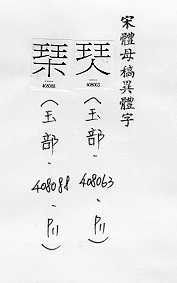 宋體母稿異體字
珡
408063
（玉部-408063-P11）
琹
408088
（玉部-408088-P11）